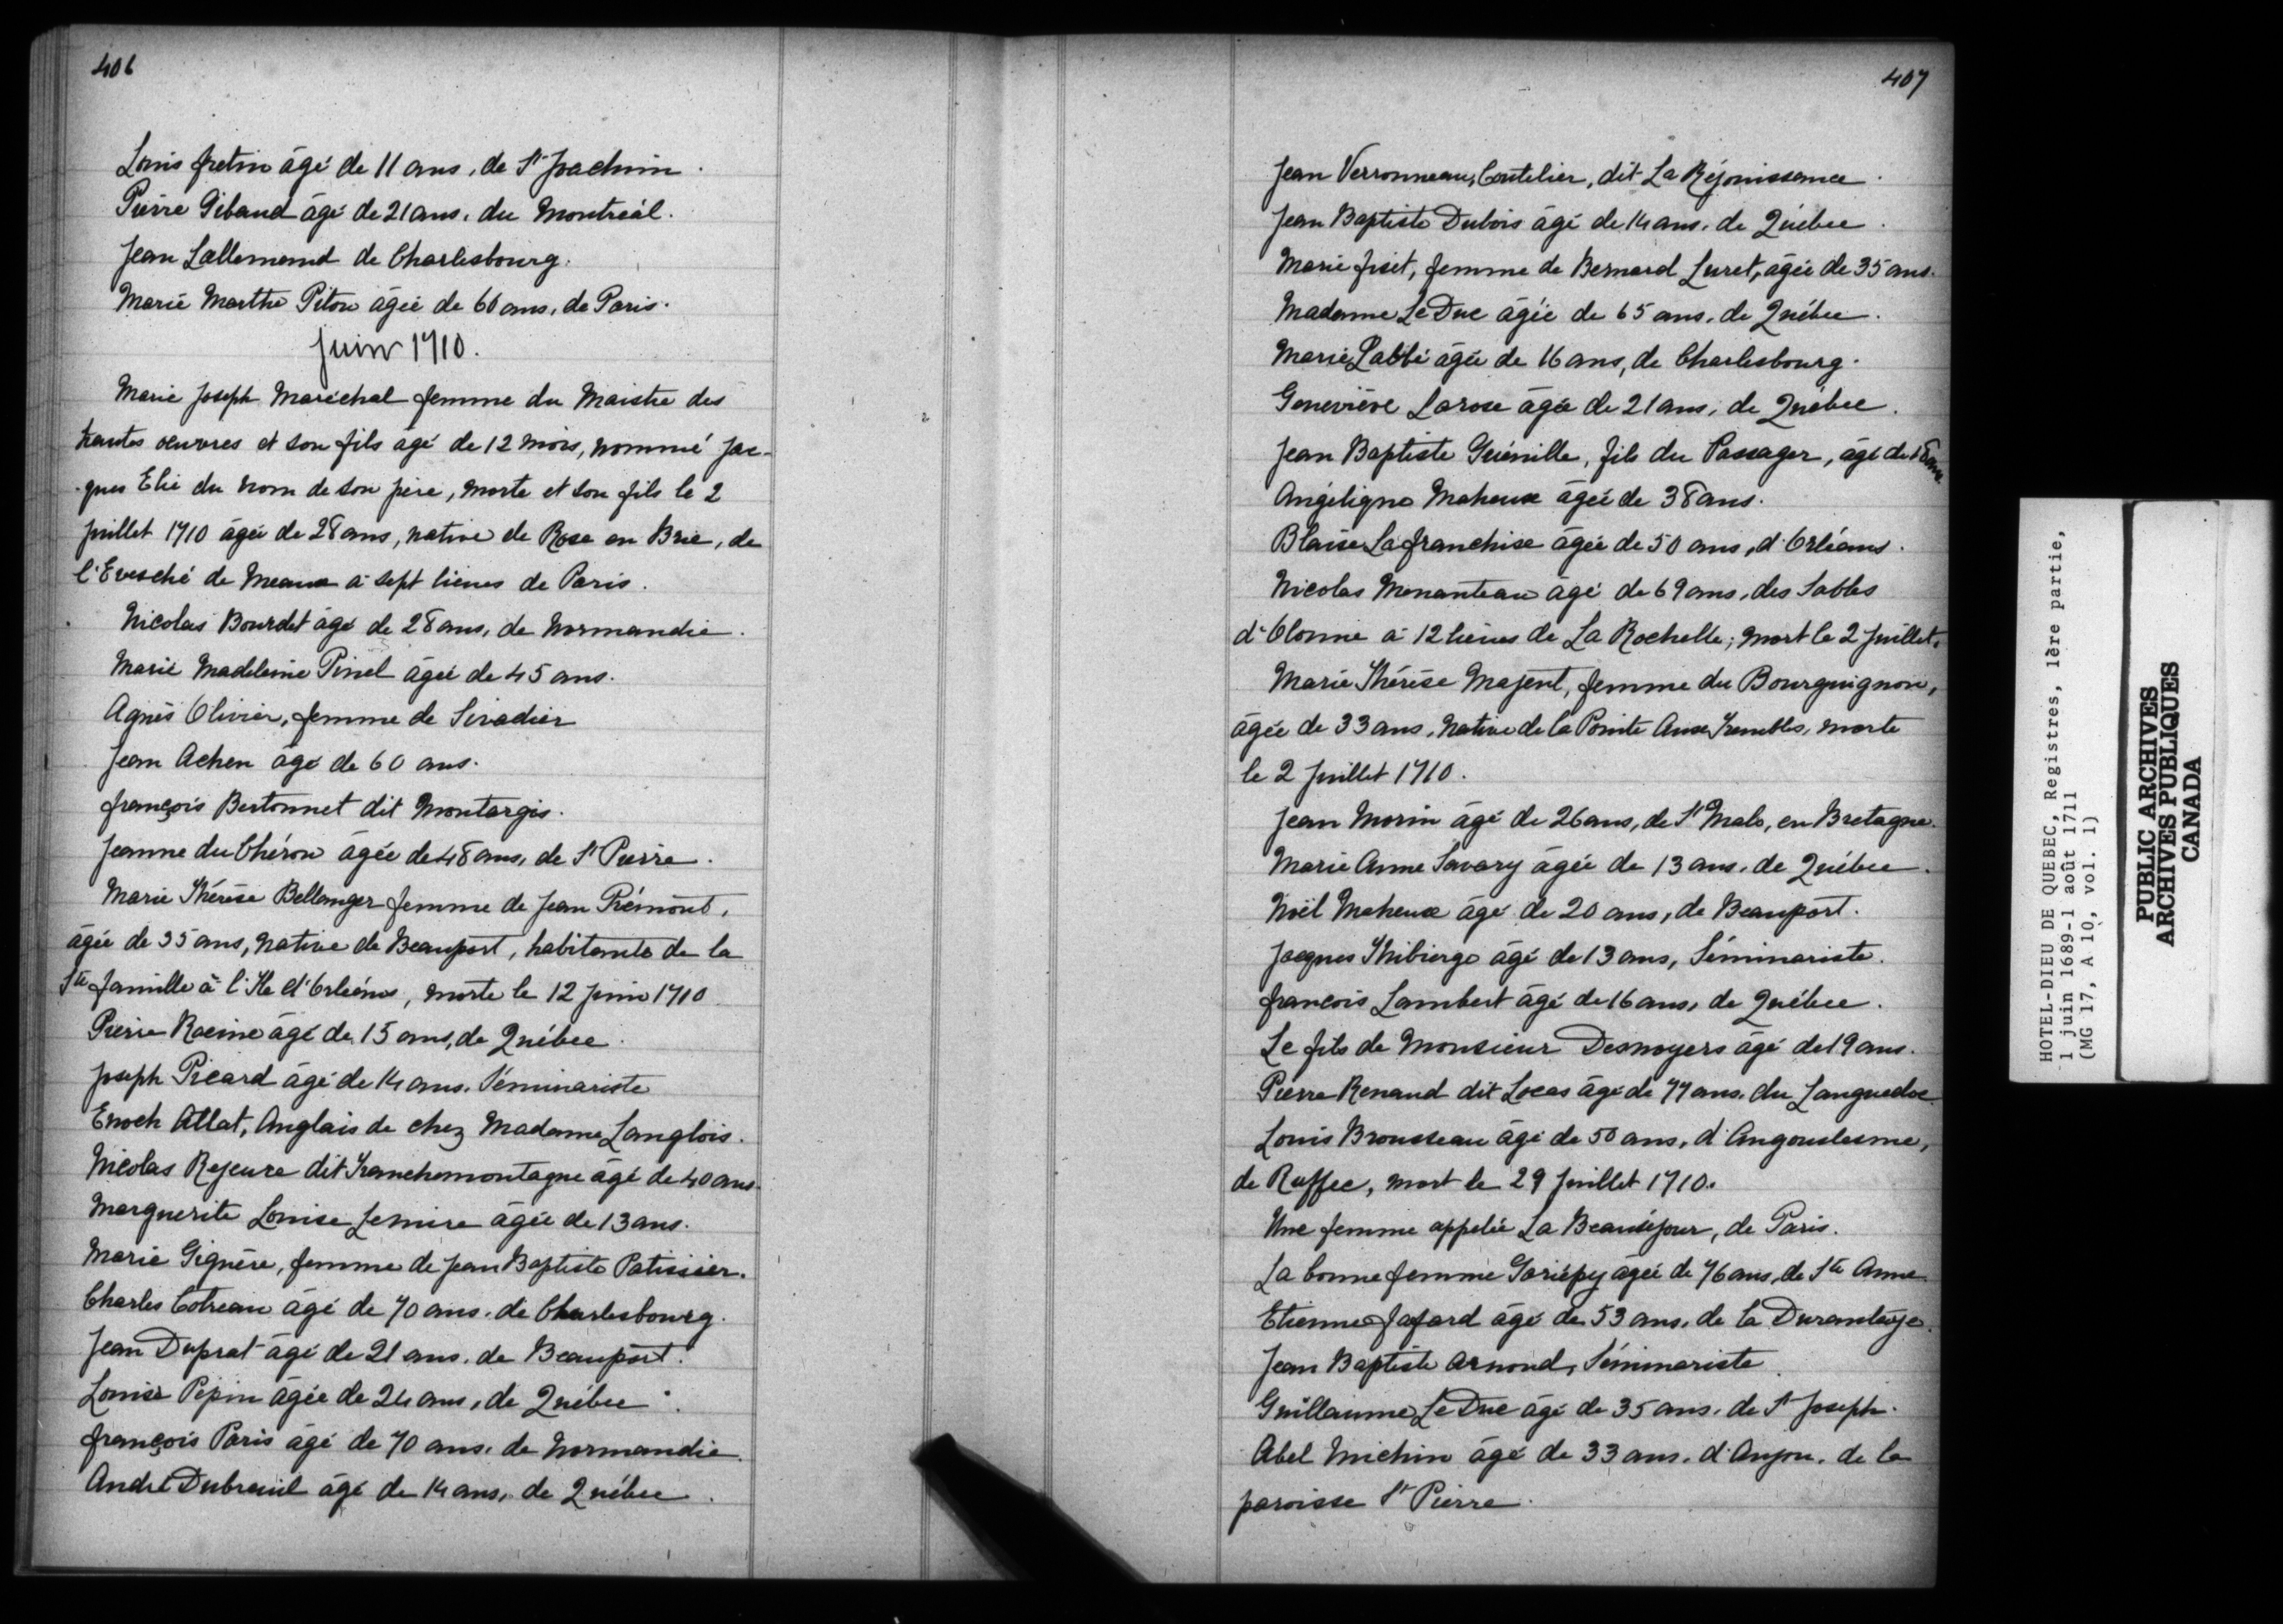 406
Louis fretin âgé de 11 ans, de St Joachim.
Pierre Gibaud âgé de 21 ans, du Montréal.
Jean Lallemand de Charlesbourg.
Marie Marthe Piton âgée de 60 ans, de Paris.
Juin 1710.
Marie Joseph Maréchal femme du Maistre des
hautes oeuvres et son fils âgé de 12 mois, nommé Jac-
ques Elie du nom de son père, morte et son fils le 2
juillet 1710 âgée de 28 ans, native de Rose en Brie, de
l'Evesché de Meaux à sept lieues de Paris.
Nicolas Bourdet âgé de 28 ans, de Normandie.
Marie Madeleine Pinel âgée de 45 ans.
Agnès Olivier, femme de Siradier
Jean Achen âgé de 60 ans.
françois Bertonnet dit Montargis.
Jeanne du Chéron âgée de 48 ans, de St Pierre.
Marie Thérèse Bellanger femme de Jean Prémont,
âgée de 35 ans, native de Beauport, habitante de la
Ste famille à l'Ile d'Orléans, morte le 12 Juin 1710
Pierre Racine âgé de 15 ans, de Québec.
Joseph Picard âgé de 14 ans, Séminariste
Enoch Allat, Anglais de chez Madame Langlois.
Nicolas Rejeure dit Tranchemontagne âgé de 40 ans.
Marguerite Louise Lemire âgée de 13 ans.
Marie Giguère, femme de Jean Baptiste Patissier.
Charles Cotreau âgé de 70 ans, de Charlesbourg.
Jean Duprat âgé de 21 ans, de Beauport.
Louise Pepin âgée de 24 ans, de Québec.
françois Paris âgé de 70 ans, de Normandie.
André Dubreuil âgé de 14 ans, de Québec.
407
Jean Verronneau, Coutelier, dit La Réjouissance.
Jean Baptiste Dubois âgé de 14 ans, de Québec.
Marie fiset, femme de Bernard Luret, âgée de 35 ans.
Madame Le Duc âgée de 65 ans, de Québec.
Marie Labbé âgée de 16 ans, de Charlesbourg.
Geneviève Larose âgée de 21 ans, de Québec.
Jean Baptiste Guénille, fils du Passager, âgé de 18 ans
Angélique Maheux âgée de 38 ans.
Blaise Lafranchise âgée de 50 ans, d'Orléans.
Nicolas Menanteau âgé de 69 ans, des Sables
d'Olonne à 12 lieues de La Rochelle; mort le 2 Juillet.
Marie Thérèse Majent, femme du Bourguignon,
âgée de 33 ans, native de la Pointe Aux Trembles, morte
le 2 Juillet 1710.
Jean Morin âgé de 26 ans, de St Malo, en Bretagne.
Marie Anne Savary âgée de 13 ans, de Québec.
Noël Maheux âgé de 20 ans, de Beauport.
Jacques Thibierge âgé de 13 ans, Séminariste.
françois Lambert âgé de 16 ans, de Québec.
Le fils de Monsieur Desnoyers âgé de 19 ans.
Pierre Renaud dit Locas âgé de 77 ans, du Languedoc.
Louis Brousseau âgé de 50 ans, d'Angoulesme,
de Ruffec, mort le 29 Juillet 1710.
Une femme appelée La Beauséjour, de Paris.
La bonne femme Gariépy âgée de 76 ans, de Ste Anne.
Etienne Jafard âgé de 53 ans, de la Durantaye.
Jean Baptiste Arnoud, Séminariste.
Guillaume Le Duc âgé de 35 ans, de St Joseph.
Abel Michin âgé de 33 ans, d'Anjou, de la
paroisse St Pierre.
HOTEL-DIEU DE QUEBEC, Registres, 1ère partie,
1 juin 1689-1 août 1711
(MG 17, A 10, vol. 1)
PUBLIC ARCHIVES
ARCHIVES PUBLIQUES
CANADA